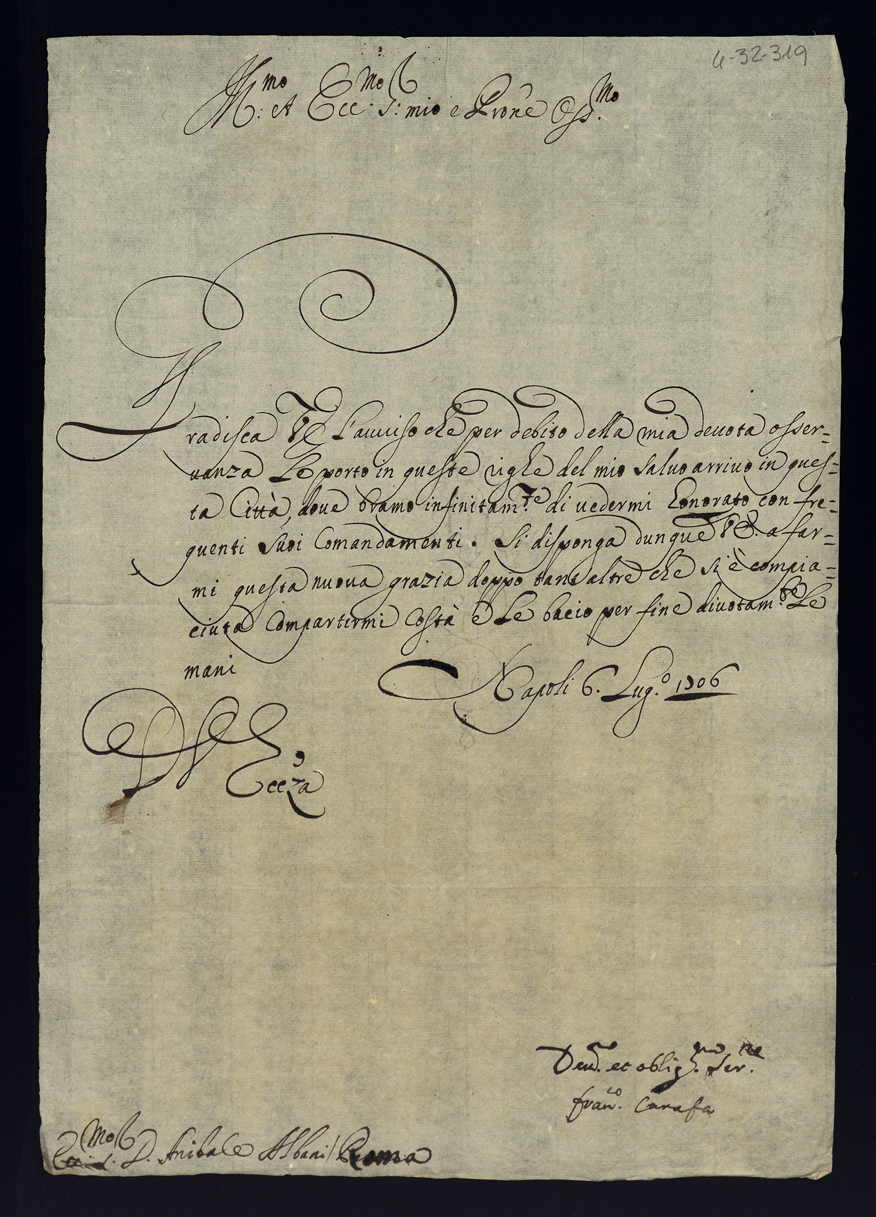 4-32-319
Ill:mo et Ecc:mo S: mio e Prone Oss.mo
Gradisca VE l'auuiso che per debito della mia deuota osser=
uanza Le porto in queste righe del mio saluo arriuo in ques=
ta Città, doue bramo infinitam.te di uedermi honorato con fre=
quenti suoi Comandamenti. Si disponga dunque VE. a far=
mi questa nuova grazia doppo tant'altre che si è compia=
ciuta Compartirmi Costà e Le bacio per fine diuotam.te Le
mani
Napoli 6. Lug.o 1706
D V Eccza
Deu.mo et oblig.mo Ser.re
Fran.co Carafa
Ecc.mo S. D. Anibale Albani / Roma